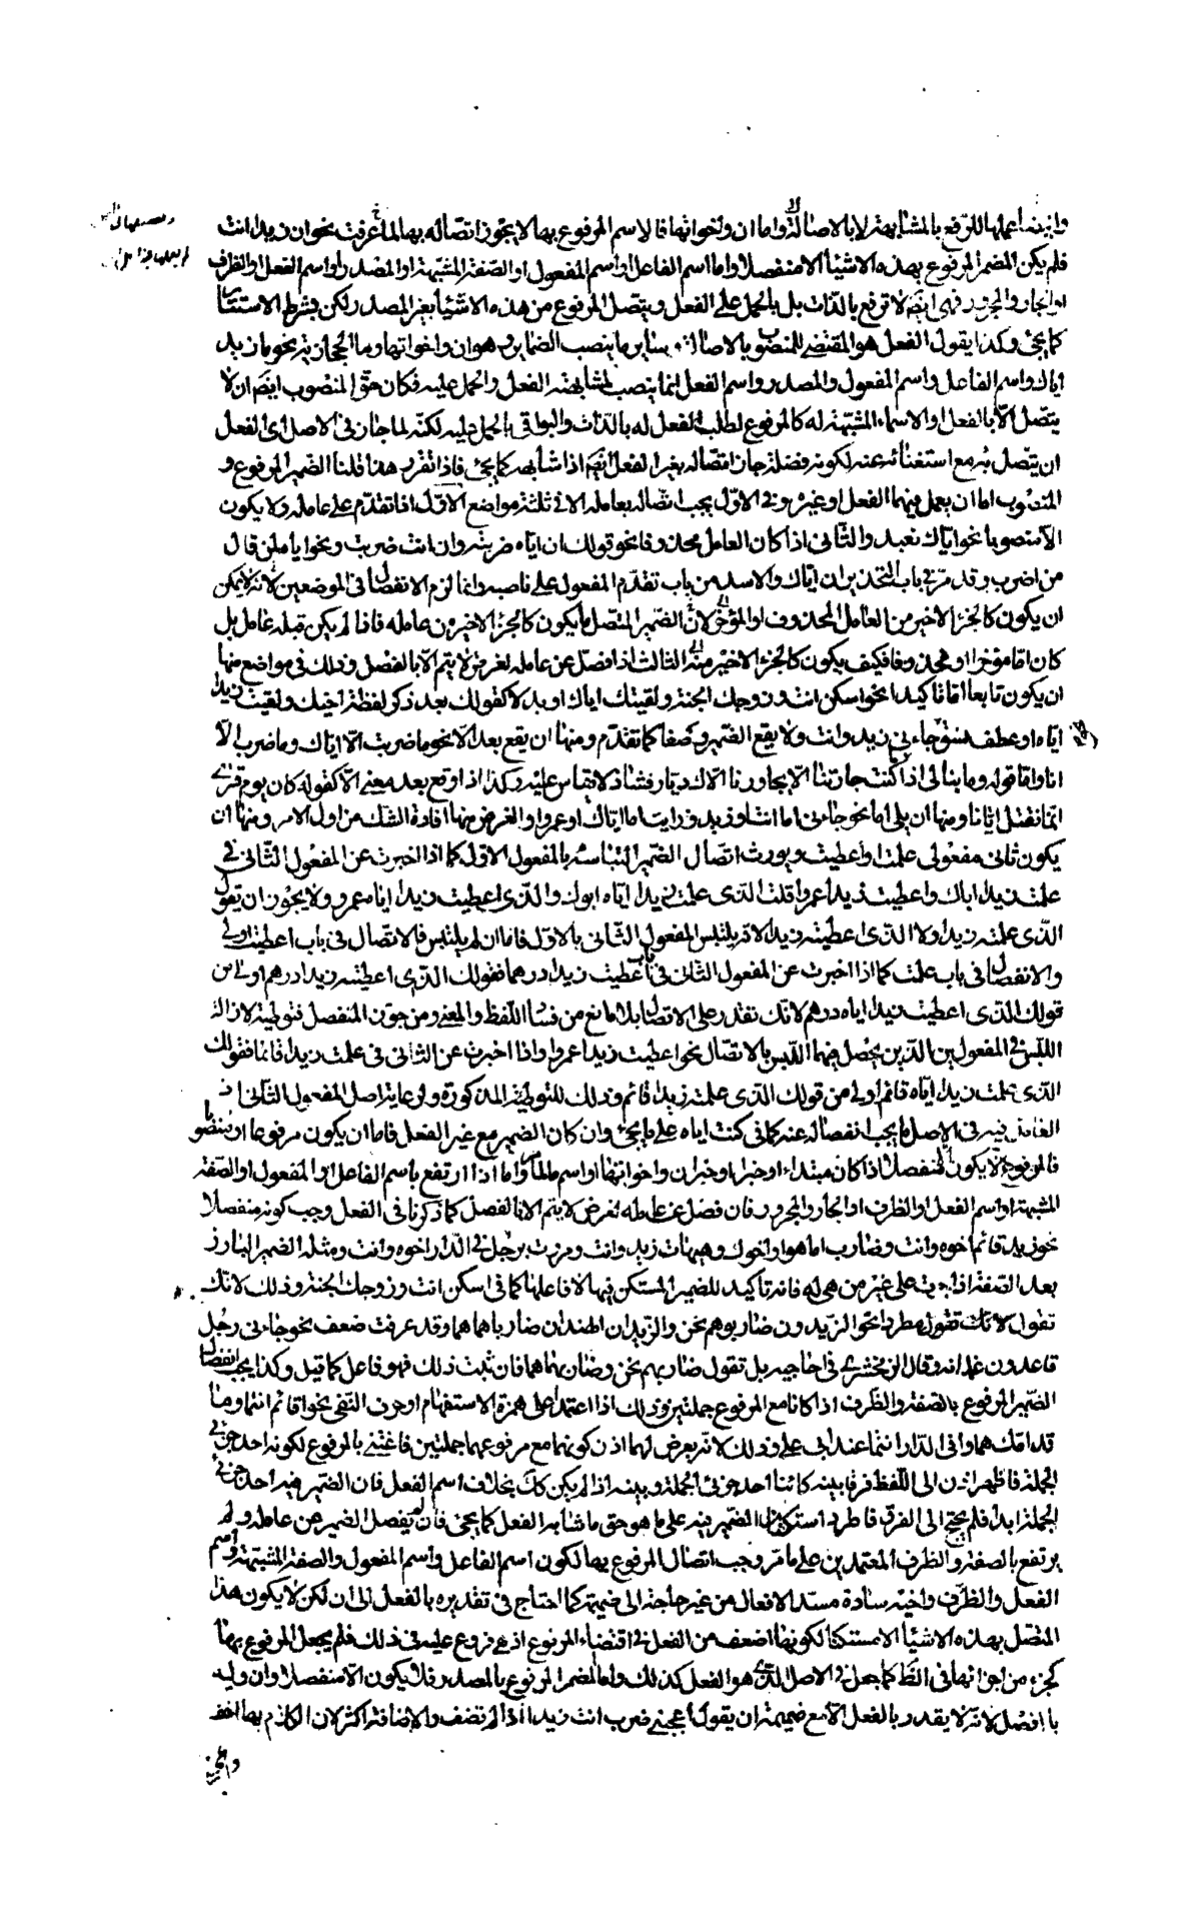 وايضا عملها للرفع بالمشابهة لا بالاصالة واما ان واخواتها فالاسم المرفوع بها لا يجوز اتصاله بها لما عرفت نحو ان زيدا انت
فلم يكن المضمر المرفوع بهذه الاشياء الا منفصلا واما اسم الفاعل واسم المفعول او الصفة المشبهة او المصدر او اسم الفعل او الظرف
او الجار والمجرور فهى ايضا لا ترفع بالذات بل بالحمل على الفعل ويتصل المرفوع من هذه الاشياء بغير المصدر لكن بشرط الاستتار
كما يجئ وكذا يقول الفعل هو المقتضى للمنصوب بالاصالة وسائر ما ينصب الضمائر وهو ان واخواتها وما الحجازية نحو ما زيد
اياك واسم الفاعل واسم المفعول والمصدر واسم الفعل انما ينصب لمشابهة الفعل والحمل عليه فكان حق المنصوب ايضا ان لا
يتصل الا بالفعل او الاسماء المشبهة له كالمرفوع لطلب الفعل له بالذات والبواقى بالحمل عليه لكنه لما جاز فى الاصل اى الفعل
ان يتصل به مع استغنائه عنه لكونه فضلة جاز اتصاله بغير الفعل ايضا اذا شابهه كما يجئ فاذا تقرر هذا قلنا الضمير المرفوع و
المنصوب اما ان يعمل فيهما الفعل او غيره وفى الاول يجب اتصاله بعامله الا فى ثلثة مواضع الاول اذا تقدم على عامله ولا يكون
الا منصوبا نحو اياك نعبد والثانى اذا كان العامل محذوفا نحو قولك ان اياه ضربته وان انت ضربت ونحو اياه لمن قال
من اضرب وقد مر فى باب التحذير ان اياك والاسد من باب تقدم المفعول على ناصبه وانما لزم الانفصال فى الموضعين لانه لا يمكن
ان يكون كالجزء الاخير من العامل المحذوف او المؤخر لان الضمير المتصل ما يكون كالجزء الاخير من عامله فاذا لم يكن قبله عامل بل
كان اما مؤخرا او محذوفا فكيف يكون كالجزء الاخير منه الثالث اذا فصل عن عامله لغرض لا يتم الا بالفصل وذلك فى مواضع منها
ان يكون تابعا اما تاكيدا نحو اسكن انت وزوجك الجنة ولقيتك اياك او بدلا كقولك بعد ذكر لفظة اخيك ولقيت زيدا
اياه او عطف نسق جاءنى زيد وانت ولا يقع الضمير وصفا كما تقدم ومنها ان يقع بعد الا نحو ما ضربت الا اياك وما ضرب الا
انا واما قوله وما نبالى اذا كنت جارتنا الا يجاورنا الاك ديار فشاذ لا يقاس عليه وكذا اذا وقع بعد معنى الا كقوله كان يوم قرى
انما نقتل ايانا ومنها ان يلى اما نحو جاءنى اما انت او زيد ورايت اما اياك او عمروا والغرض منها افادة الشك من اول الامر ومنها ان
يكون ثانى مفعولى علمت او اعطيت ويورث اتصال الضمير التباسه بالمفعول الاول كما اذا اخبرت عن المفعول الثانى فى
علمت زيدا اباك واعطيت زيدا عمروا قلت الذى علمت زيدا اياه ابوك والذى اعطيت زيدا اياه عمرو ولا يجوز ان يقول
الذى علمته زيدا ولا الذى اعطيته زيدا لانه يلتبس المفعول الثانى بالاول فاما ان لم يلتبس فالاتصال فى باب اعطيت اولى
والانفصال فى باب علمت كما اذا اخبرت عن المفعول الثانى فى باب اعطيت زيدا درهما فقولك الذى اعطيته زيدا درهم اولى من
قولك الذى اعطيت زيدا اياه درهم لانك تقدر على الاتصال بلا مانع من فساد اللفظ والمعنى ومن جوز المنفصل فتوطية لازالة
اللبس فى المفعولين الذين يحصل فيهما اللبس بالاتصال نحو اعطيت زيدا عمروا واذا اخبرت عن الثانى فى علمت زيدا قائما فقولك
الذى علمت زيدا اياه قائم اولى من قولك الذى علمته زيدا قائم وذلك للتوطية المذكورة ولرعاية اصل المفعول الثانى اذ
العامل فيه فى الاصل ما يجب انفصاله عنه كما فى كنت اياه على ما يجئ وان كان الضمير مع غير الفعل فاما ان يكون مرفوعا او منصوبا
فالمرفوع لا يكون منفصلا اذا كان مبتداء او خبرا او خبر ان واخواتها او اسم ما واما اذا ارتفع باسم الفاعل او المفعول او الصفة
المشبهة او اسم الفعل او الظرف او الجار والمجرور فان فصل عن عامله لغرض لا يتم الا بالفصل كما ذكرنا فى الفعل وجب كونه منفصلا
نحو زيد قائم اخوه وانت وضارب اما هو او اخوك وهيهات زيد وانت ومررت برجل فى الدار اخوه وانت ومثله الضمير البارز
بعد الصفة اذا جرت على غير من هى له فانه تاكيد للضمير المستكن فيها لا فاعلها كما فى اسكن انت وزوجك الجنة وذلك لانك
تقول مطردا نحو الزيدون ضاربوهم نحن والزيدان الهندان ضارباهما هما وقد عرفت ضعف نحو جاءنى رجل
قاعدون غلمانه وقال الزمخشرى فى احاجيه بل تقول ضاربهم نحن وضاربهما هما فان ثبت ذلك فهو فاعل كما قيل وكذا يجب انفصال
الضمير المرفوع بالصفة والظرف اذا كانا مع المرفوع جملتين وذلك اذا اعتمدا على همزة الاستفهام او حرف النفى نحو اقائم انتما وما
قدامك هما وافى الدار انتما عند ابى على وذلك لانه يعرض لهما اذن كونهما مع مرفوعهما جملتين فاعتنى بالمرفوع لكونه احد جزئى
الجملة فاظهر اذن الى اللفظ فرقا بينه كائنا احد جزئى الجملة وبينه اذا لم يكن كك بخلاف اسم الفعل فان الضمير فيه احد جزئى
الجملة ابدا فلم يحتج الى الفرق فاطرد استكنان الضمير فيه على ما هو حق ما شابه الفعل كما يجئ فان لم يفصل الضمير عن عامله ولم
يرتفع بالصفة والظرف المعتمدين على ما مر وجب اتصال المرفوع بها لكون اسم الفاعل واسم المفعول والصفة المشبهة واسم
الفعل والظرف واخيه سادة مسد الافعال من غير حاجة الى ضميمة كما احتاج فى تقديره بالفعل الى ان لكن لا يكون هذا
المتصل بهذه الاشياء الا مستكنا لكونها اضعف من الفعل فى اقتضاء المرفوع اذ هى فروع عليه فى ذلك فلم يجعل المرفوع بها
كجزء من اجزائها فى الظاهر كما جعل فى الاصل الذى هو الفعل كذلك واما المضمر المرفوع بالمصدر فلا يكون الا منفصلا وان وليه
بلا فصل لانه لا يقدر بالفعل الا مع ضميمة ان يقول اعجبنى ضرب انت زيدا اذا لم تضف والاضافة اكثر لان الكلام بها اخف